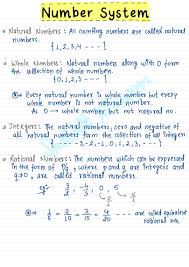 Number System
• Natural Numbers : All counting numbers are called natural
numbers.
{1,2,3,4 ---- }
• Whole Numbers : Natural numbers along with 0 form
the collection of whole number.
{0,1,2,3 ---- }
⇒ Every natural number is whole number but every
whole number is not natural number.
As 0 → whole number but not natural no.
• Integers : The natural numbers, zero and negative of
all natural numbers form the collection of all Integers.
{ -----3,-2,-1,0,1,2,3, --- }
• Rational Numbers : The numbers which can be expressed
in the form of p/q, where p and q are Integers and
q≠0, are called rational numbers.
eg: 3/2, -4/5, 0, 5
⇒ 1/5 = 2/10 = 3/15 = 4/20 --- are called equivalent
rational no.